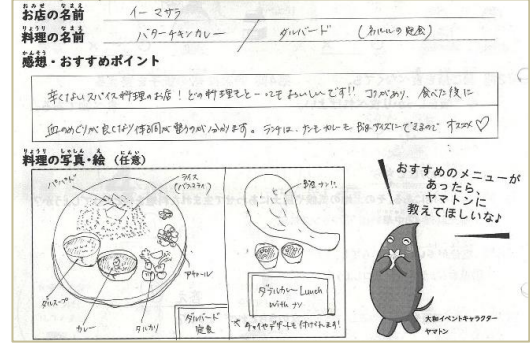 お店の名前 イーマサラ
料理の名前 バターチキンカレー / ダルバード (ネパールの定食)
感想・おすすめポイント
辛くないスパイス料理のお店！どの料理もとーってもおいしいです!! コクがあり、食べた後に
血のめぐりが良くなり体調が整うのが分かります。ランチは、ナンもカレーもBigサイズにできるのでオススメ♡
料理の写真・絵（任意）
パパド
ライス
(バスマティ)
アチャール
ダルスープ
カレー
タルカリ
ダルバード
定食
ナン!!
ダブルカレーLunch
with ナン
☆チャイやデザートも付けられます!
おすすめのメニューが
あったら、
ヤマトンに
教えてほしいな♪
大和イベントキャラクター
ヤマトン